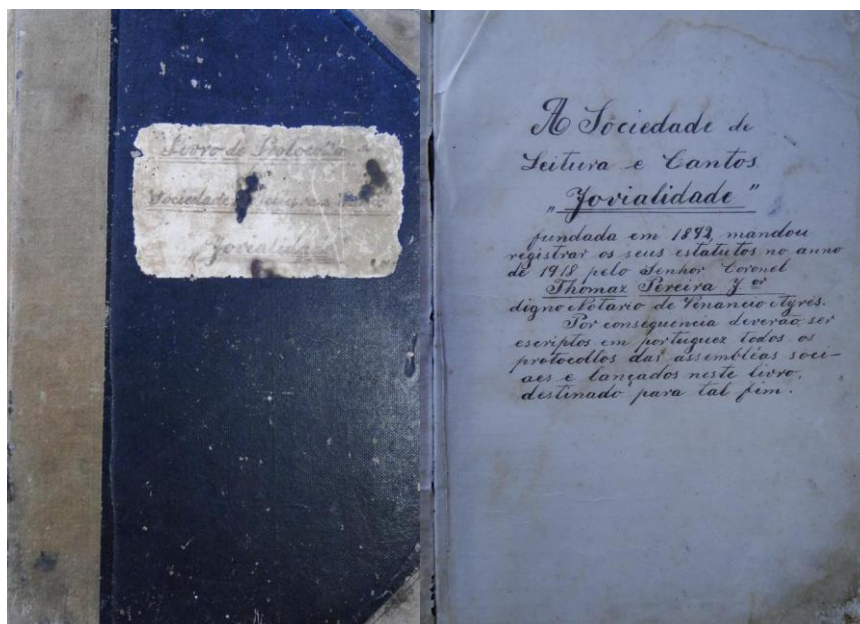 Livro de Protocollo
Sociedade de Leitura e Canto
"Jovialidade"
A Sociedade de
Leitura e Cantos
„Jovialidade"
fundada em 1892, mandou
registrar os seus estatutos no anno
de 1918 pelo Senhor Coronel
Thomaz Pereira Jor
digno Notario de Venancio Ayres.
Por consequencia deverão ser
escriptos em portuguez todos os
protocollos das assembléas soci-
aes e lançados neste livro,
destinado para tal fim.